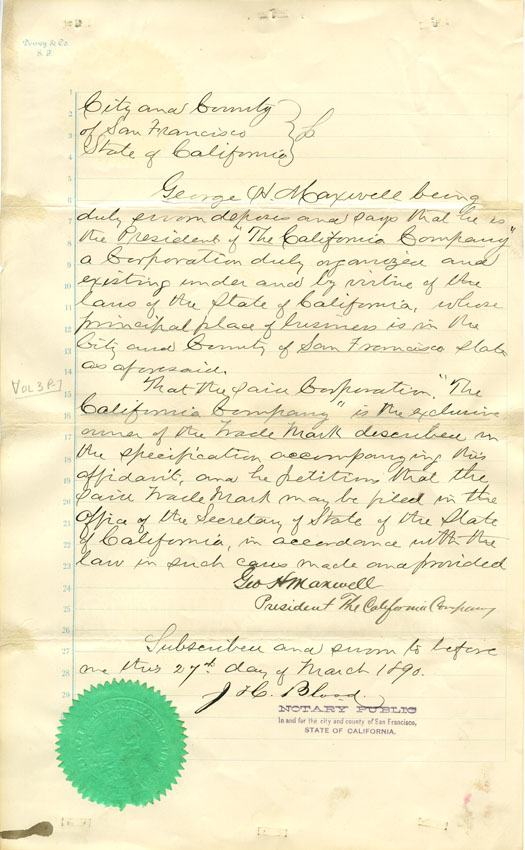 Dewey & Co
S. F.
City and County
of San Francisco } ss
State of California
George H. Maxwell being
duly sworn deposes and says that he is
the President of "The California Company"
a Corporation duly organized and
existing under and by virtue of the
laws of the State of California, whose
principal place of business is in the
City and County of San Francisco State
as aforesaid.
That the said Corporation, "The
California Company" is the exclusive
owner of the Trade Mark described in
the specification accompanying this
affidavit, and he petitions that the
said Trade Mark may be filed in the
office of the Secretary of State of the State
of California, in accordance with the
law in such cases made and provided
Geo H Maxwell
President The California Company
Subscribed and sworn to before
me this 27th day of March 1890.
J. H. C. Blood.
NOTARY PUBLIC
In and for the city and county of San Francisco,
STATE OF CALIFORNIA.
VOL 3 P. 7
1
2
3
4
5
6
7
8
9
10
11
12
13
14
15
16
17
18
19
20
21
22
23
24
25
26
27
28
29